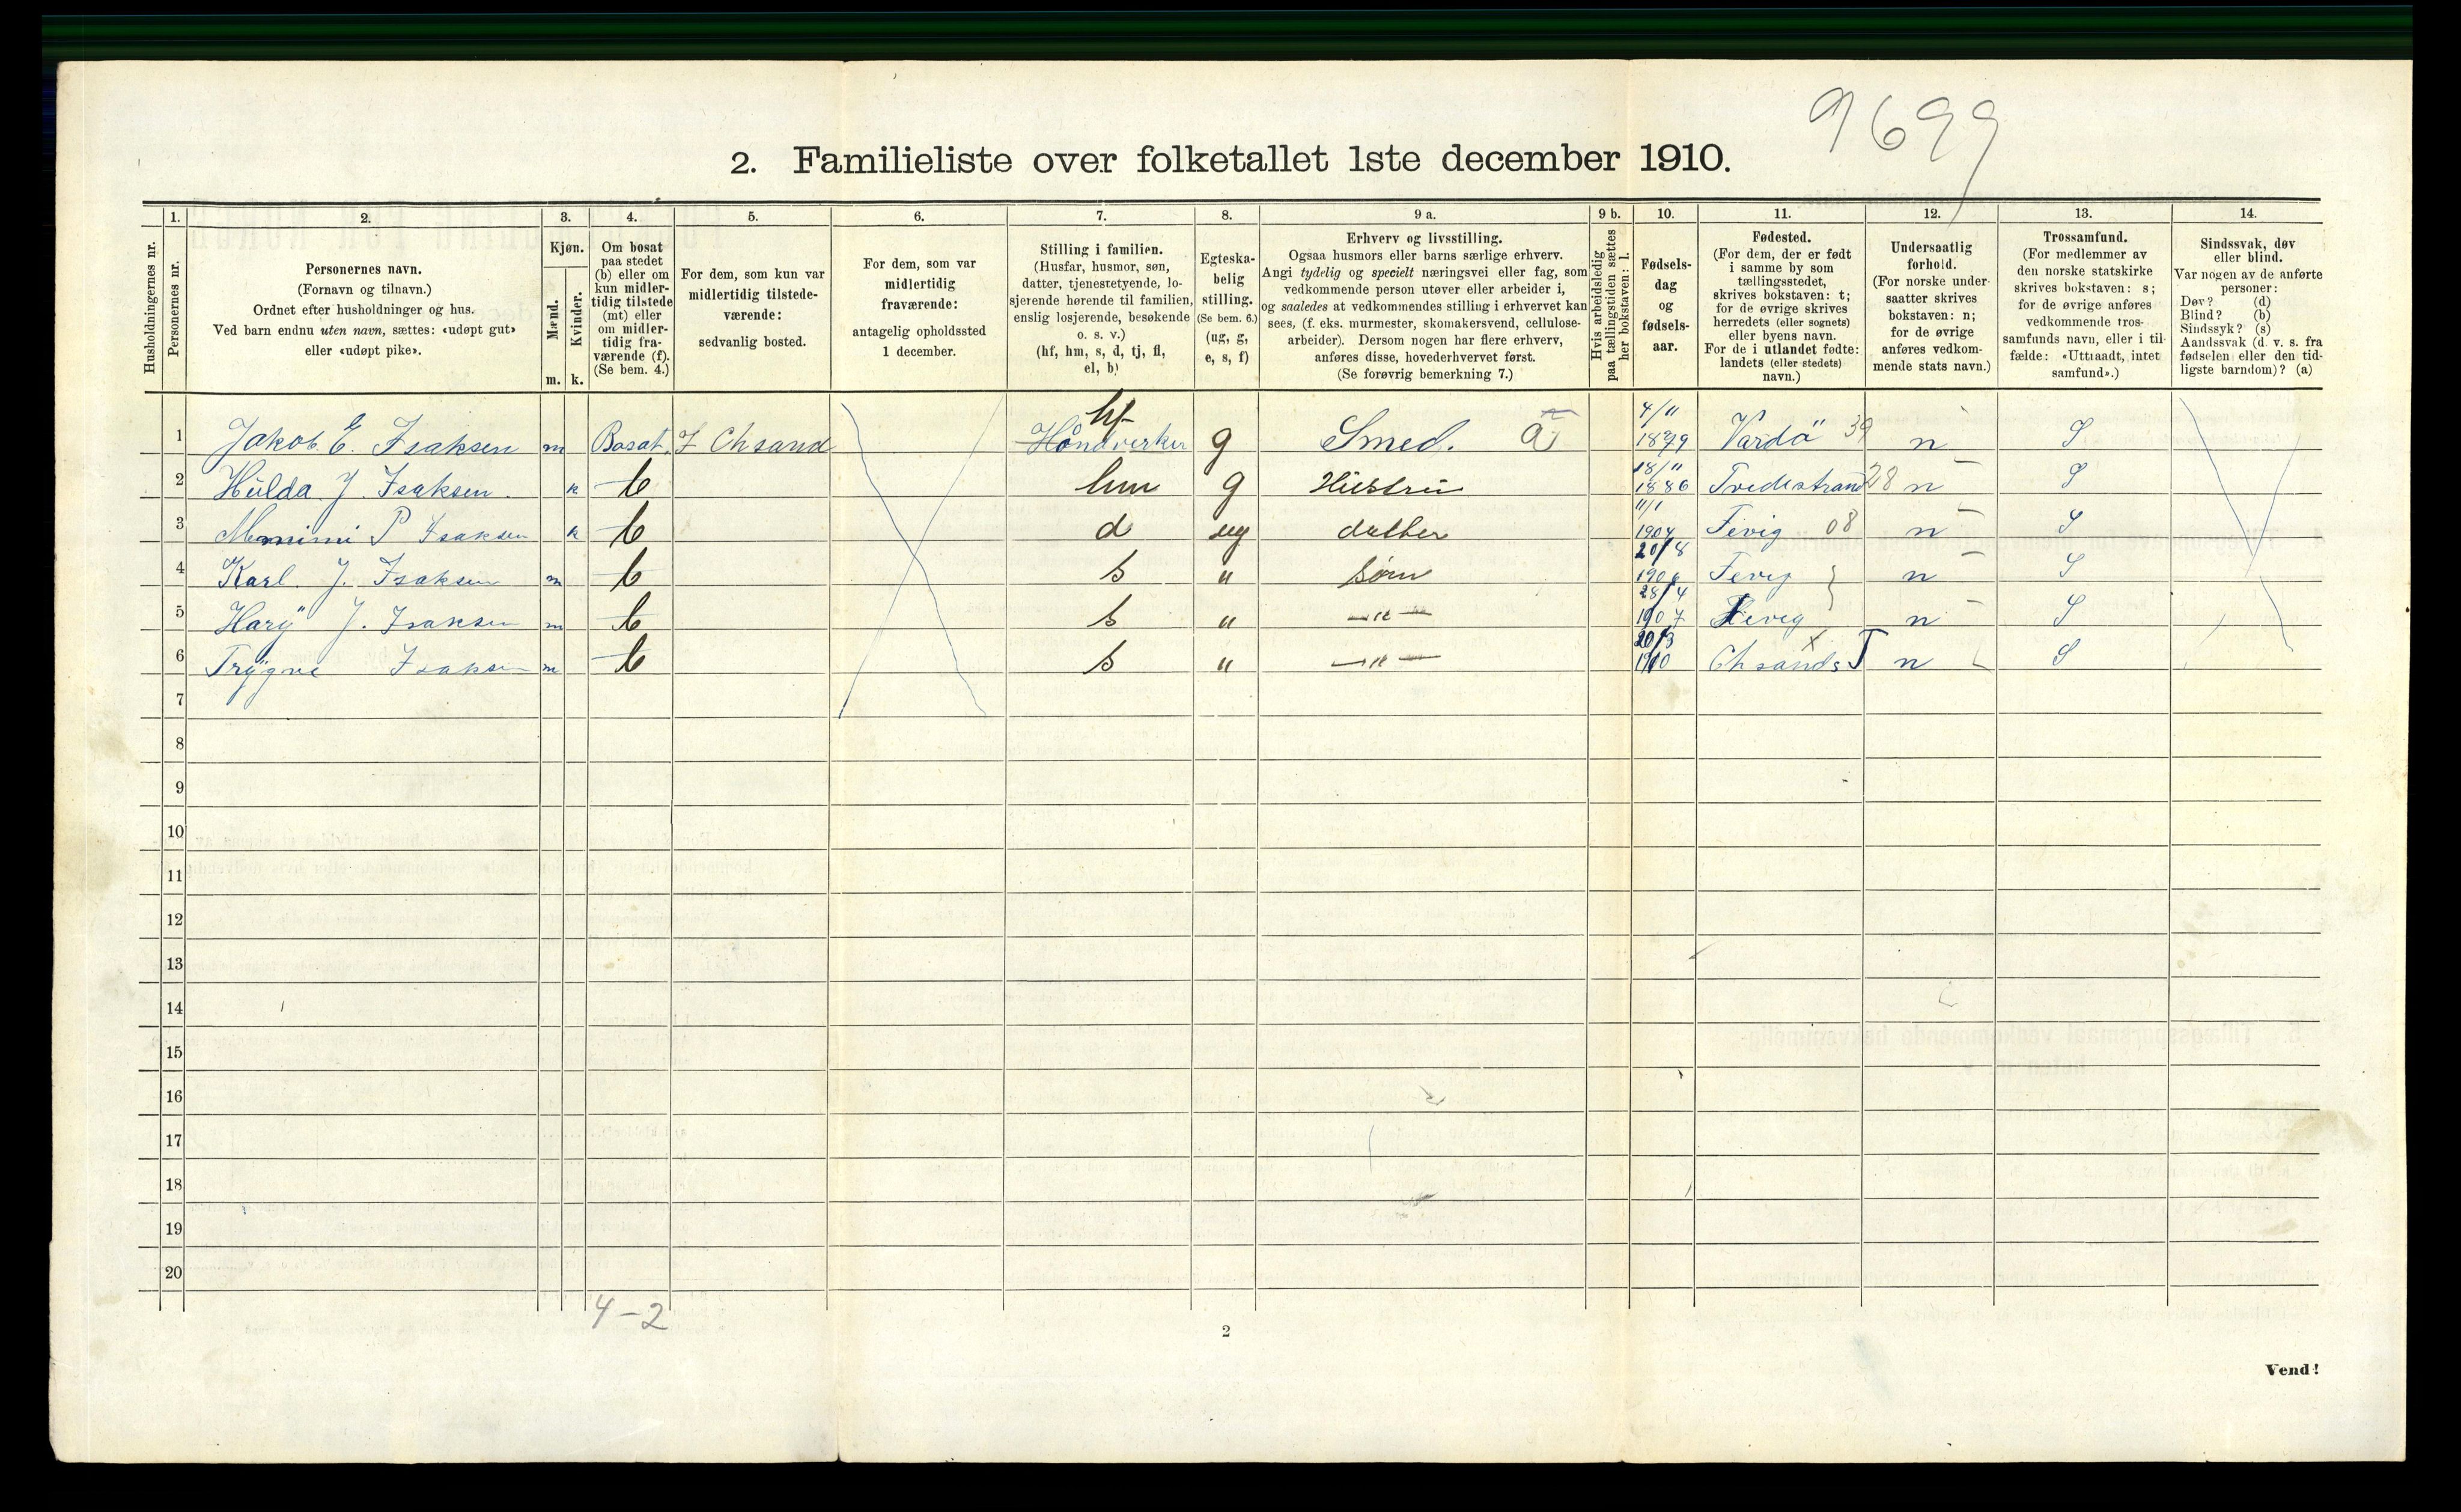 9699
2. Familieliste over folketallet 1ste december 1910.
Husholdningernes nr.
1. Personernes nr.
2. Personernes navn. (Fornavn og tilnavn.) Ordnet efter husholdninger og hus. Ved barn endnu uten navn, sættes: «udøpt gut» eller «udøpt pike».
3. Kjøn. Mænd. m. Kvinder. k.
4. Om bosat paa stedet (b) eller om kun midlertidig tilstede (mt) eller om midlertidig fraværende (f). (Se bem. 4.)
5. For dem, som kun var midlertidig tilstedeværende: sedvanlig bosted.
6. For dem, som var midlertidig fraværende: antagelig opholdssted 1 december.
7. Stilling i familien. (Husfar, husmor, søn, datter, tjenestetyende, losjerende hørende til familien, enslig losjerende, besøkende o. s. v.) (hf, hm, s, d, tj, fl, el, b)
8. Egteskabelig stilling. (Se bem. 6.) (ug, g, e, s, f)
9 a. Erhverv og livsstilling. Ogsaa husmors eller barns særlige erhverv. Angi tydelig og specielt næringsvei eller fag, som vedkommende person utøver eller arbeider i, og saaledes at vedkommendes stilling i erhvervet kan sees, (f. eks. murmester, skomakersvend, cellulose-arbeider). Dersom nogen har flere erhverv, anføres disse, hovederhvervet først. (Se forøvrig bemerkning 7.)
9 b. Hvis arbeidsledig paa tællingstiden sættes her bokstaven: l.
10. Fødselsdag og fødselsaar.
11. Fødested. (For dem, der er født i samme by som tællingsstedet, skrives bokstaven: t; for de øvrige skrives herredets (eller sognets) eller byens navn. For de i utlandet fødte: landets (eller stedets) navn.)
12. Undersaatlig forhold. (For norske undersaatter skrives bokstaven: n; for de øvrige anføres vedkommende stats navn.)
13. Trossamfund. (For medlemmer av den norske statskirke skrives bokstaven: s; for de øvrige anføres vedkommende trossamfunds navn, eller i tilfælde: «Uttraadt, intet samfund».)
14. Sindssvak, døv eller blind. Var nogen av de anførte personer: Døv? (d) Blind? (b) Sindssyk? (s) Aandssvak (d. v. s. fra fødselen eller den tidligste barndom)? (a)
1 Jakob E. Isaksen m Bosat. I Chsand hf Håndverker g Smed. a 4/11 1879 Vardø 39 n S
2 Hulda J. Isaksen. k b hm g Hustru 18/11 1886 Tvedestrand 28 n S
3 Mimmi P Isaksen k b d ug datter 11/1 1904 Fevig 08 n S
4 Karl. J. Isaksen m b s " sønn 20/8 1906 Fevig } n S
5 Hary J. Isaksen m b s " —"— 28/4 1907 Fevig n S
6 Trygve Isaksen m b s " —"— 20/3 1910 Chsands T n S
7
8
9
10
11
12
13
14
15
16
17
18
19
20
4-2
2
Vend!